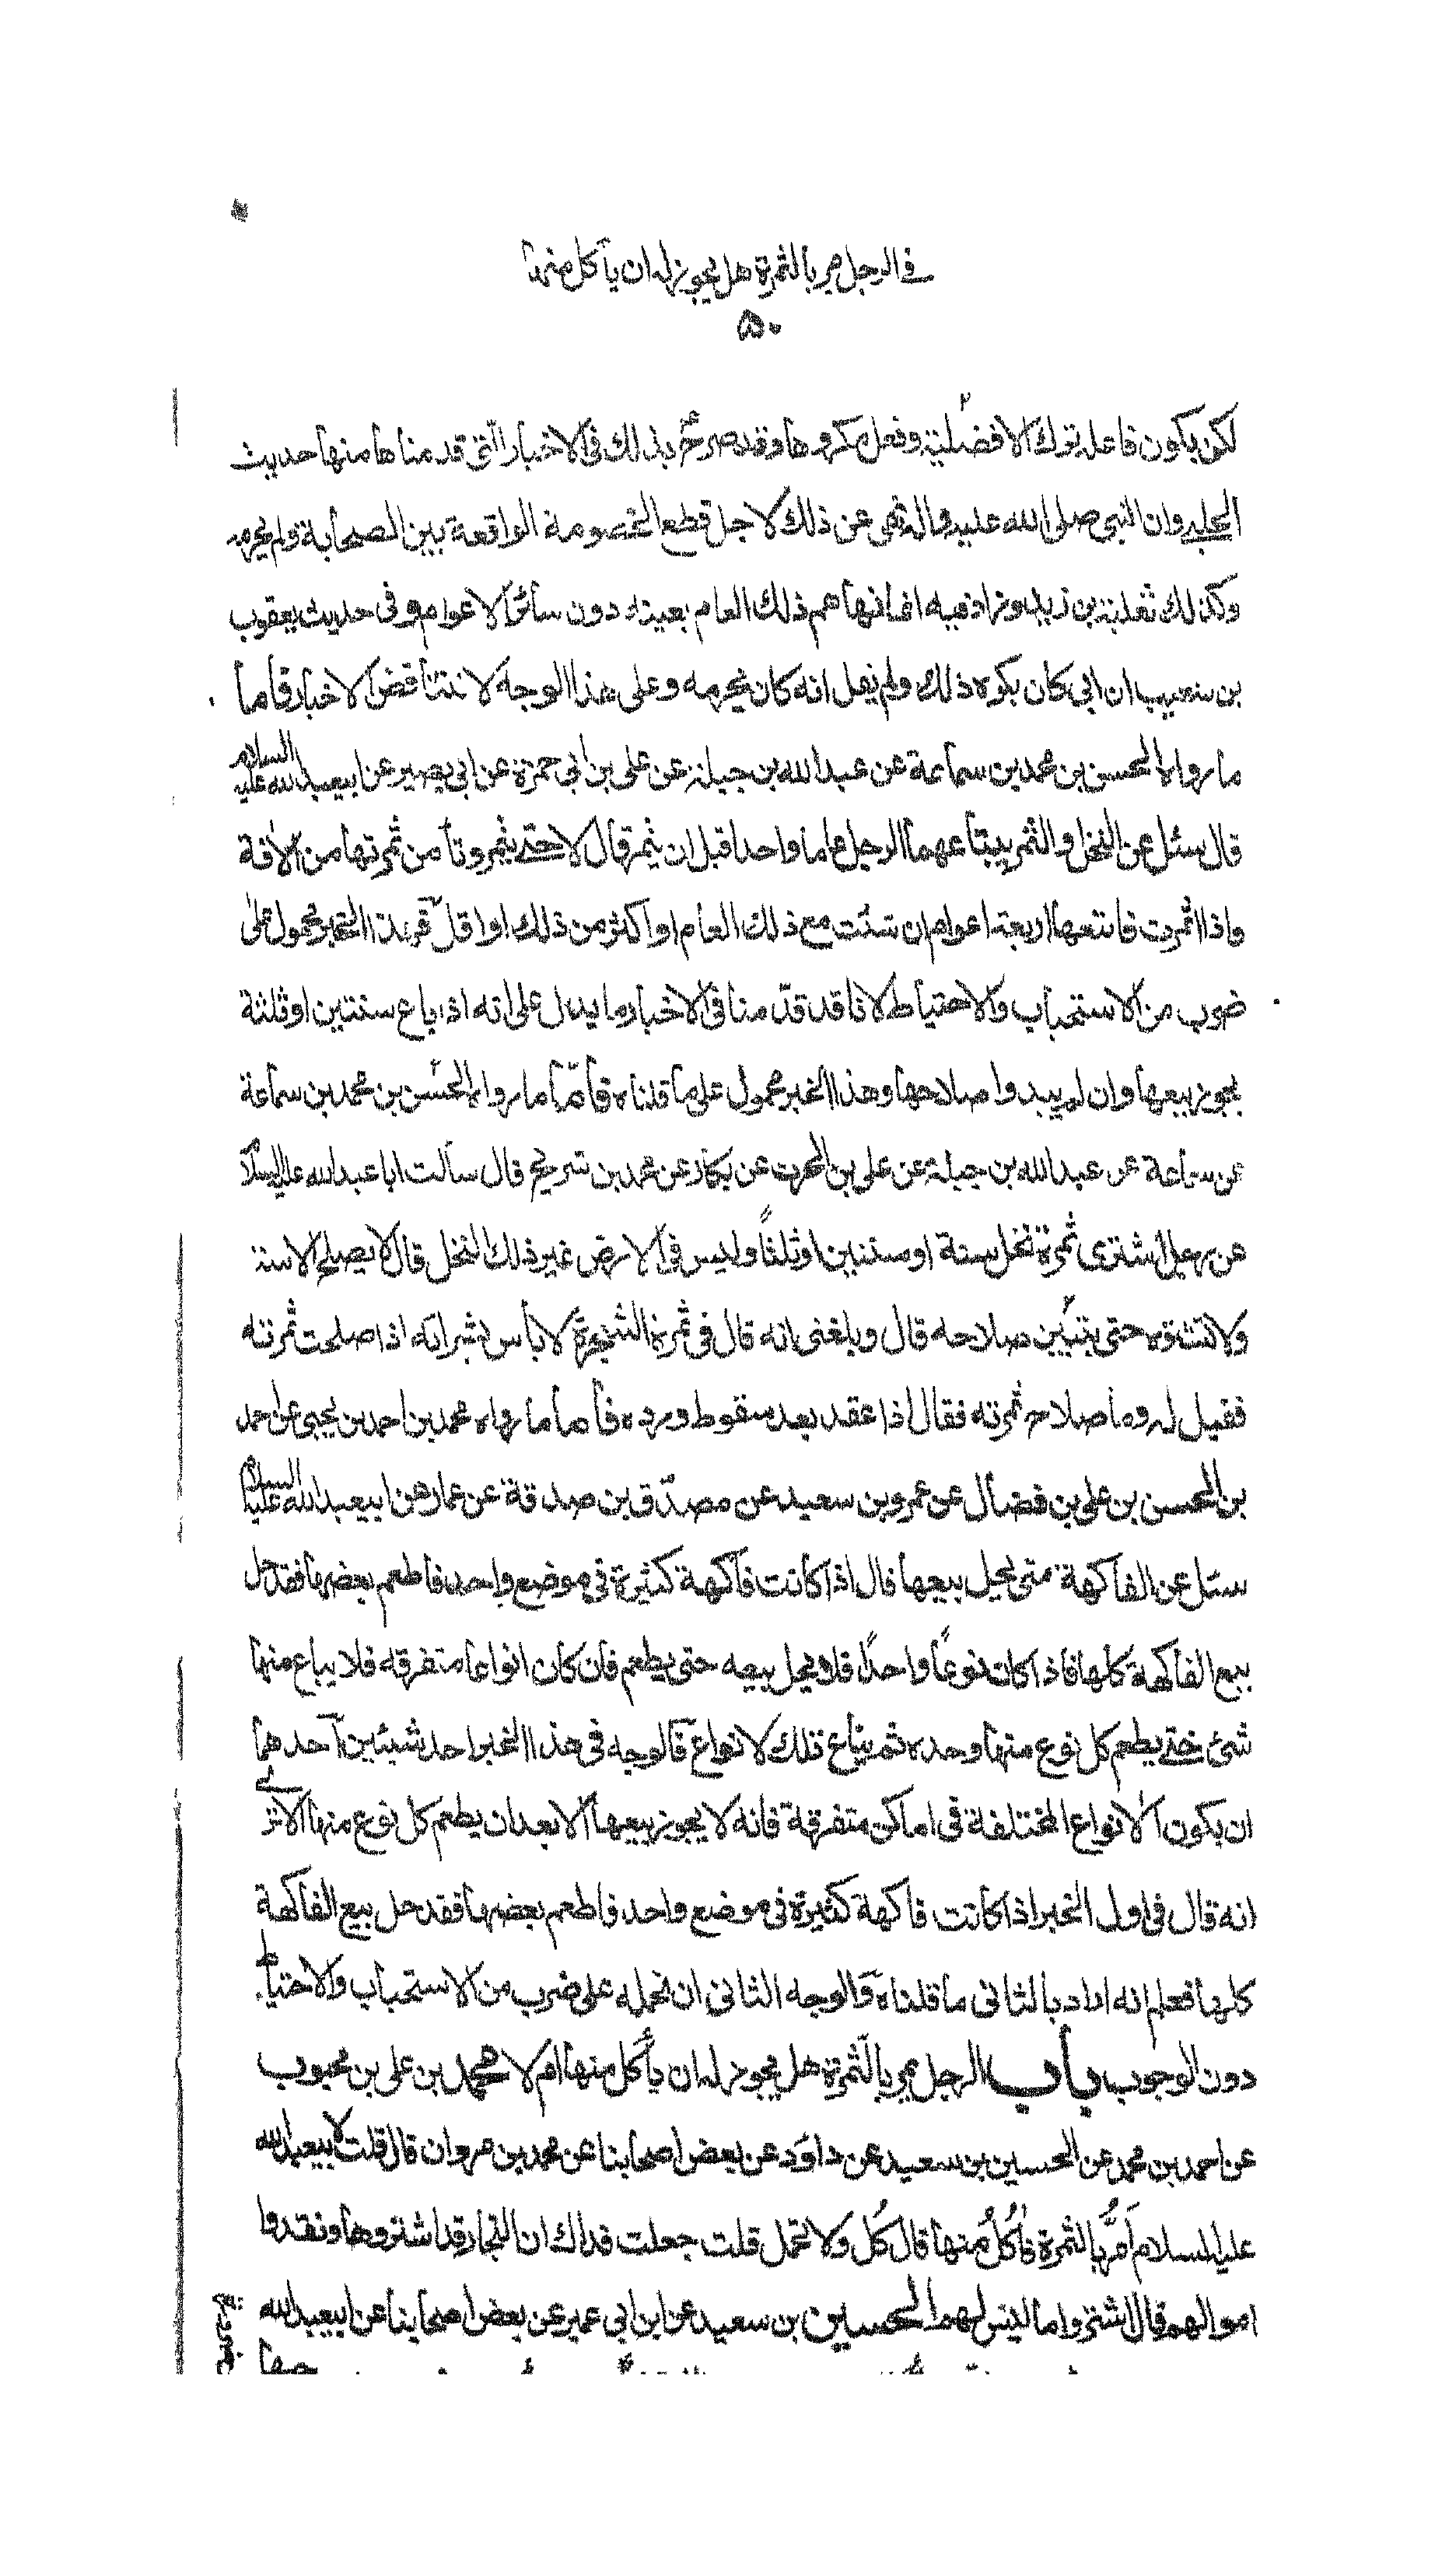 في الرجل يمر بالثمرة هل يجوز له ان ياكل منها
۵۰
لكن يكون فاعله بترك الافضلية وفعل مكروها وقد صرح بذلك في الاخبار التي قد مناها منها حديث
الحلبي وان النبي صلى الله عليه وآله نهى عن ذلك لاجل قطع الخصومة الواقعة بين الصحابة ولم يحرمه
وكذلك ثعلبة بن زيد وزاد فيه انما نهاهم ذلك العام بعينه دون سائر الاعوام وفي حديث يعقوب
بن شعيب ان ابي كان يكره ذلك ولم يقل انه كان يحرمه وعلى هذا الوجه لا تتناقض الاخبار فاما
ما رواه الحسن بن محمد بن سماعة عن عبد الله بن جبلة عن علي بن ابي حمزة عن ابي بصير عن ابيعبد الله عليه السلام
قال سئل عن النخل والثمر يبتاعهما الرجل عاما واحدا قبل ان يثمر قال لا حتى يثمر وتأمن ثمرتها من الافة
واذا اثمرت فابتعها اربعة اعوام ان شئت مع ذلك العام او اكثر من ذلك او اقل فهذا الخبر محمول على
ضرب من الاستحباب والاحتياط لانا قد قدّمنا في الاخبار ما يدل على انه اذا باع سنتين او ثلثة
يجوز بيعها وان لم يبدوا صلاحها وهذا الخبر محمول على ما قلناه فأمّا ما رواه الحسن بن محمد بن سماعة
عن سماعة عن عبد الله بن جبلة عن علي بن الحرث عن بكار عن محمد بن شريح قال سألت ابا عبد الله عليه السلام
عن رجل اشترى ثمرة نخل سنة او سنتين او ثلثاً وليس في الارض غير ذلك النخل قال لا يصلح الا سنة
ولا تشتره حتى يتبيّن صلاحه قال وبلغني انه قال في ثمرة الشجرة لا بأس بشرائه اذا صلحت ثمرته
فقيل له وما صلاح ثمرته فقال اذا عقد بعد سقوط ورده فأما ما رواه محمد بن احمد بن يحيى عن احمد
بن الحسن بن علي بن فضال عن عمرو بن سعيد عن مصدّق بن صدقة عن عمار عن ابيعبد الله عليه السلام
سئل عن الفاكهة متى يحل بيعها قال اذا كانت فاكهة كثيرة في موضع واحد فاطعم بعضها فقد حل
بيع الفاكهة كلها فاذا كان نوعاً واحداً فلا يحل بيعه حتى يطعم فان كان انواعا متفرقه فلا يباع منها
شئ حتى يطعم كل نوع منها وحده ثم يباع تلك الانواع فالوجه في هذا الخبر احد شيئين احدهما
ان يكون الانواع المختلفة في اماكن متفرقة فانه لا يجوز بيعها الا بعد ان يطعم كل نوع منها الا ترى
انه قال في اول الخبر اذا كانت فاكهة كثيرة في موضع واحد فاطعم بعضها فقد حل بيع الفاكهة
كلها فعلم انه اراد بالثاني ما قلناه والوجه الثاني ان نحمله على ضرب من الاستحباب والاحتياط
دون الوجوب باب الرجل يمر بالثمرة هل يجوز له ان يأكل منها ام لا محمد بن علي بن محبوب
عن احمد بن محمد عن الحسين بن سعيد عن داود عن بعض اصحابنا عن محمد بن مروان قال قلت لابيعبد الله
عليه السلام أمُرُّ بالثمرة فآكُلُ منها قال كُل ولا تحمل قلت جعلت فداك ان التجار قد اشتروها ونقدوا
اموالهم قال اشتروا ما ليس لهم الحسين بن سعيد عن ابن ابي عمير عن بعض اصحابنا عن ابيعبد الله